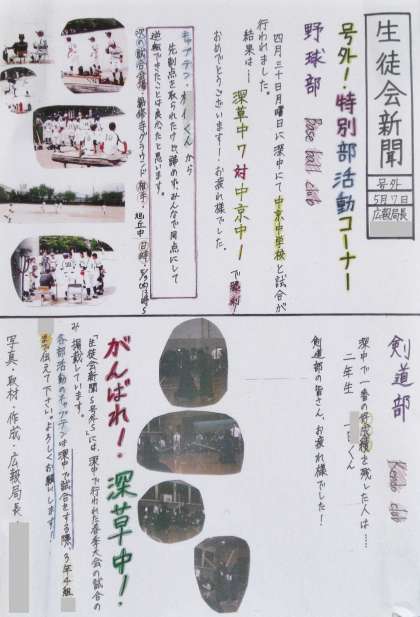 生徒会新聞
号外
5月7日
広報局長
号外!・特別部活動コーナー
野球部 Base ball club
四月三十日月曜日に深中にて中京中学校と試合が
行われました。
結果は…深草中7対中京中!で勝利
おめでとうございます!お疲れ様でした。
キャプテン・くんから
先制点を取られたけど、諦めず、みんなで同点にして
逆転できたことは良かったと思います。
次の試合会場・勧修寺グラウンド 相手・旭丘中 日時・
剣道部 Kendo club
深中で一番の好成績を残した人は…
二年生 くん
剣道部の皆さん、お疲れ様でした!
がんばれ!・深草中!
「生徒会新聞5号外」には、深中で行われた春季大会の試合の
み掲載しています。
各部活動のキャプテンは深中で試合をする際、3年4組
まで伝えて下さい。よろしくお願いします!!
写真・取材・作成 広報局長